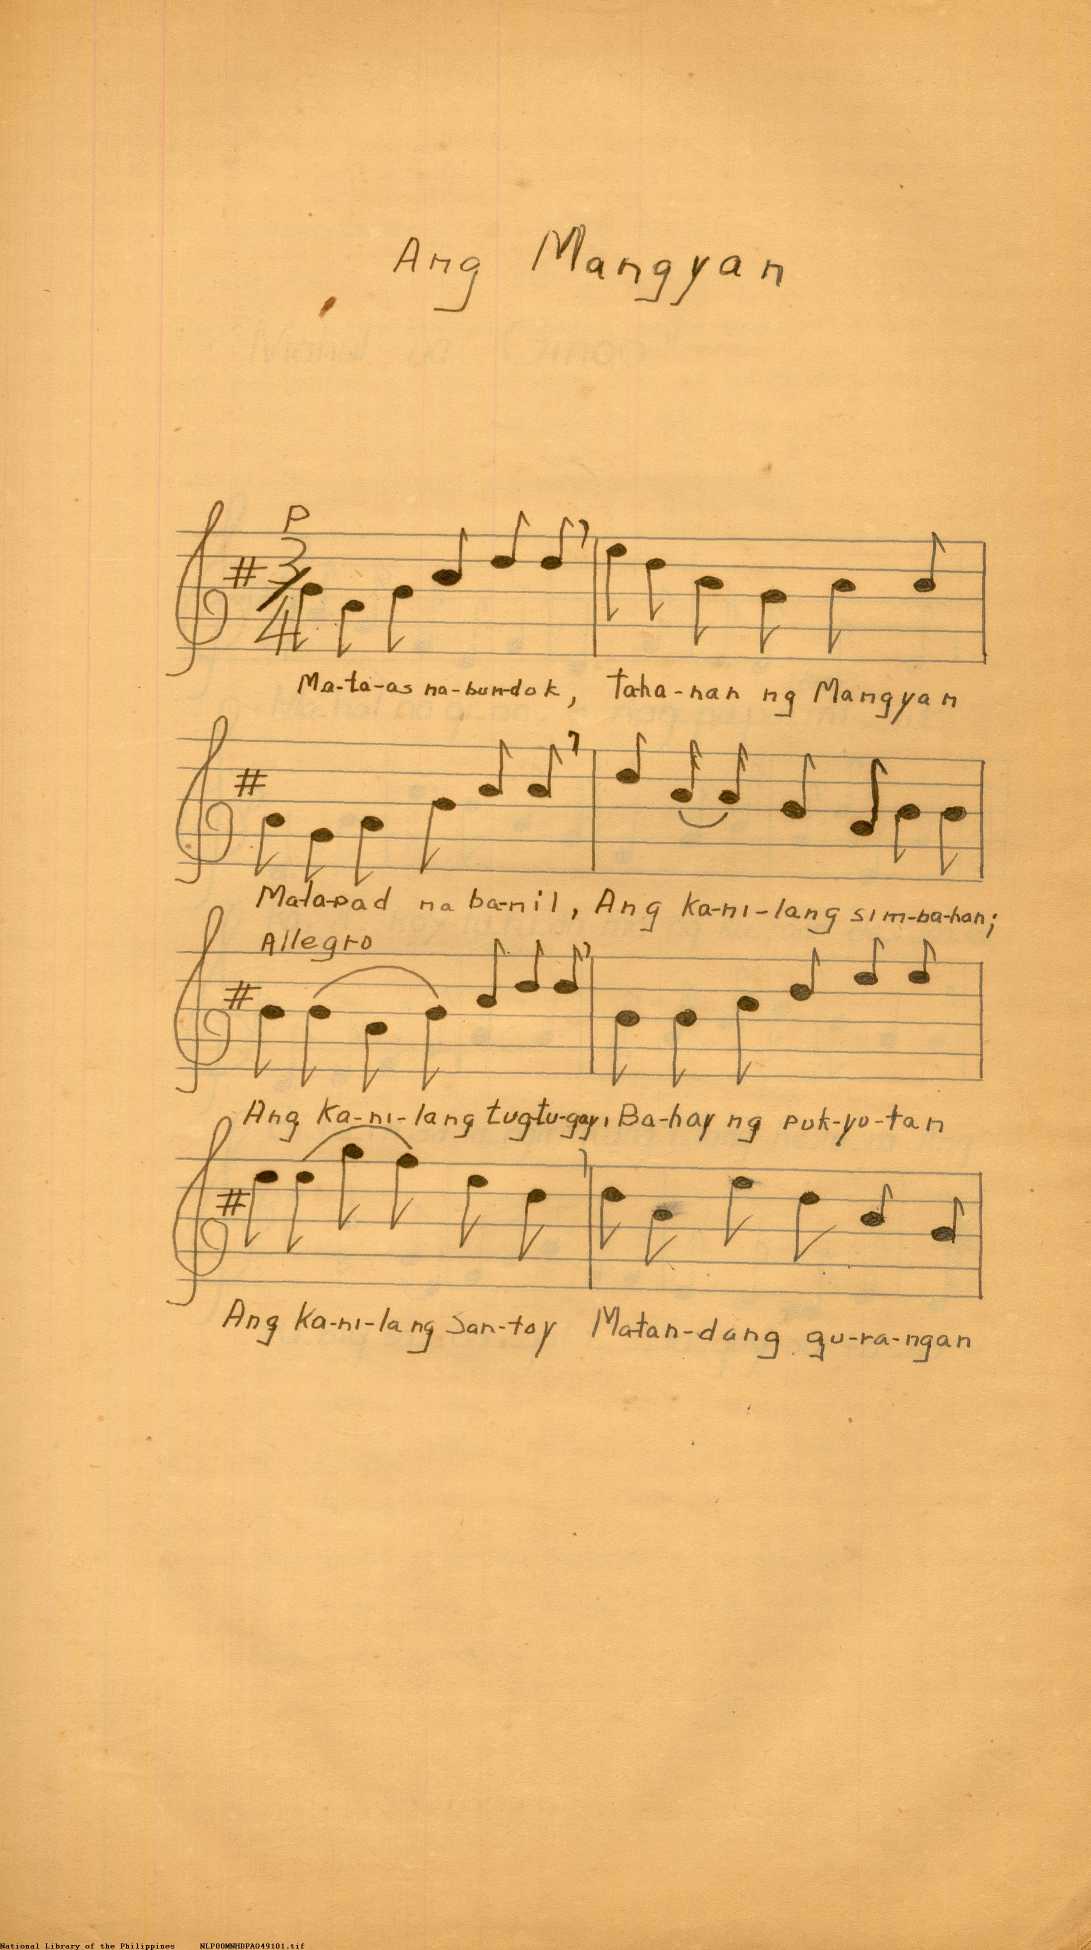 Ang Mangyan
P
3/4
Ma-ta-as na-bun-dok, Taha-nan ng Mangyan
Mala-pad na ba-nil, Ang ka-ni-lang sim-ba-han;
Allegro
Ang ka-ni-lang tug-tu-gay, Ba-hay ng puk-yo-tan
Ang ka-ni-lang San-toy Matan-dang gu-ra-ngan
National Library of the Philippines NLP00MNHDPA049101.tif